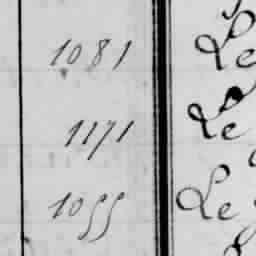 1081 Le
1171 Le
1055 Le